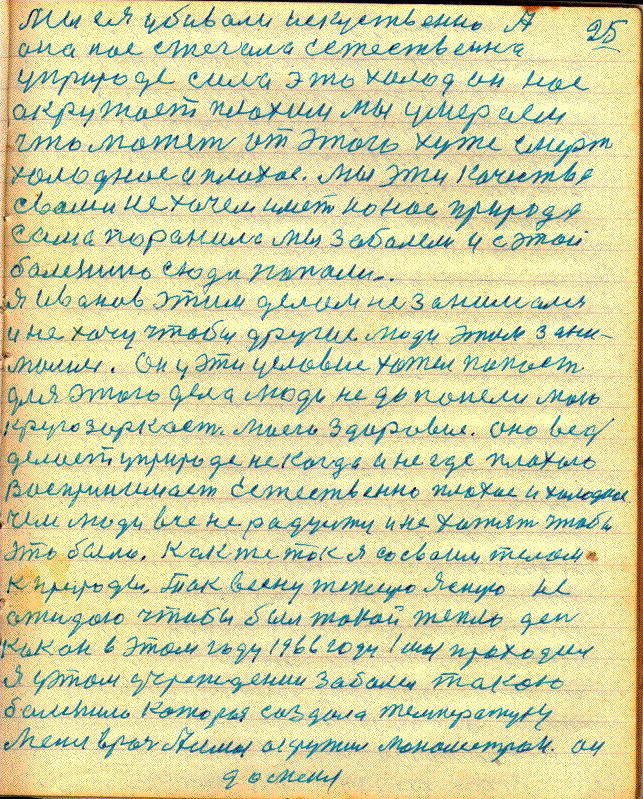 Мы ея убивали искуственно А
25
она нас стегала естественна
уприроде сила это холод он нас
окружает плохим мы умераем
что может от этого хуже смерт
холодное и плохое. Мы эти качества
сваим не хочем имет но нас природа
сама поранила мы заболели и с этой
болезнию сюда попали..
я Иванов этим делом не занималя
и не хочу чтобы другие люди этом зани-
молис. Он у эти условие хотел попаст
для этого дела люди не допонели мою
кругозоркаст. Маего здоровие. оно вед
делает уприроде некогда и негде плохого
Воспринимает естественно плохое и холодное.
чем люди все не радуюти и не хотят чтобы
это было. Как же ток я со своим телом
к природы. Так весну теплую Ясную не
ожидаю чтобы был такой тепло ден
как он в этом году 1966 году 1 мы проходил
Я у этом учреждении заболел такою
болезнию которая создала температуру
Мени врач окружил монометром. он
до мены